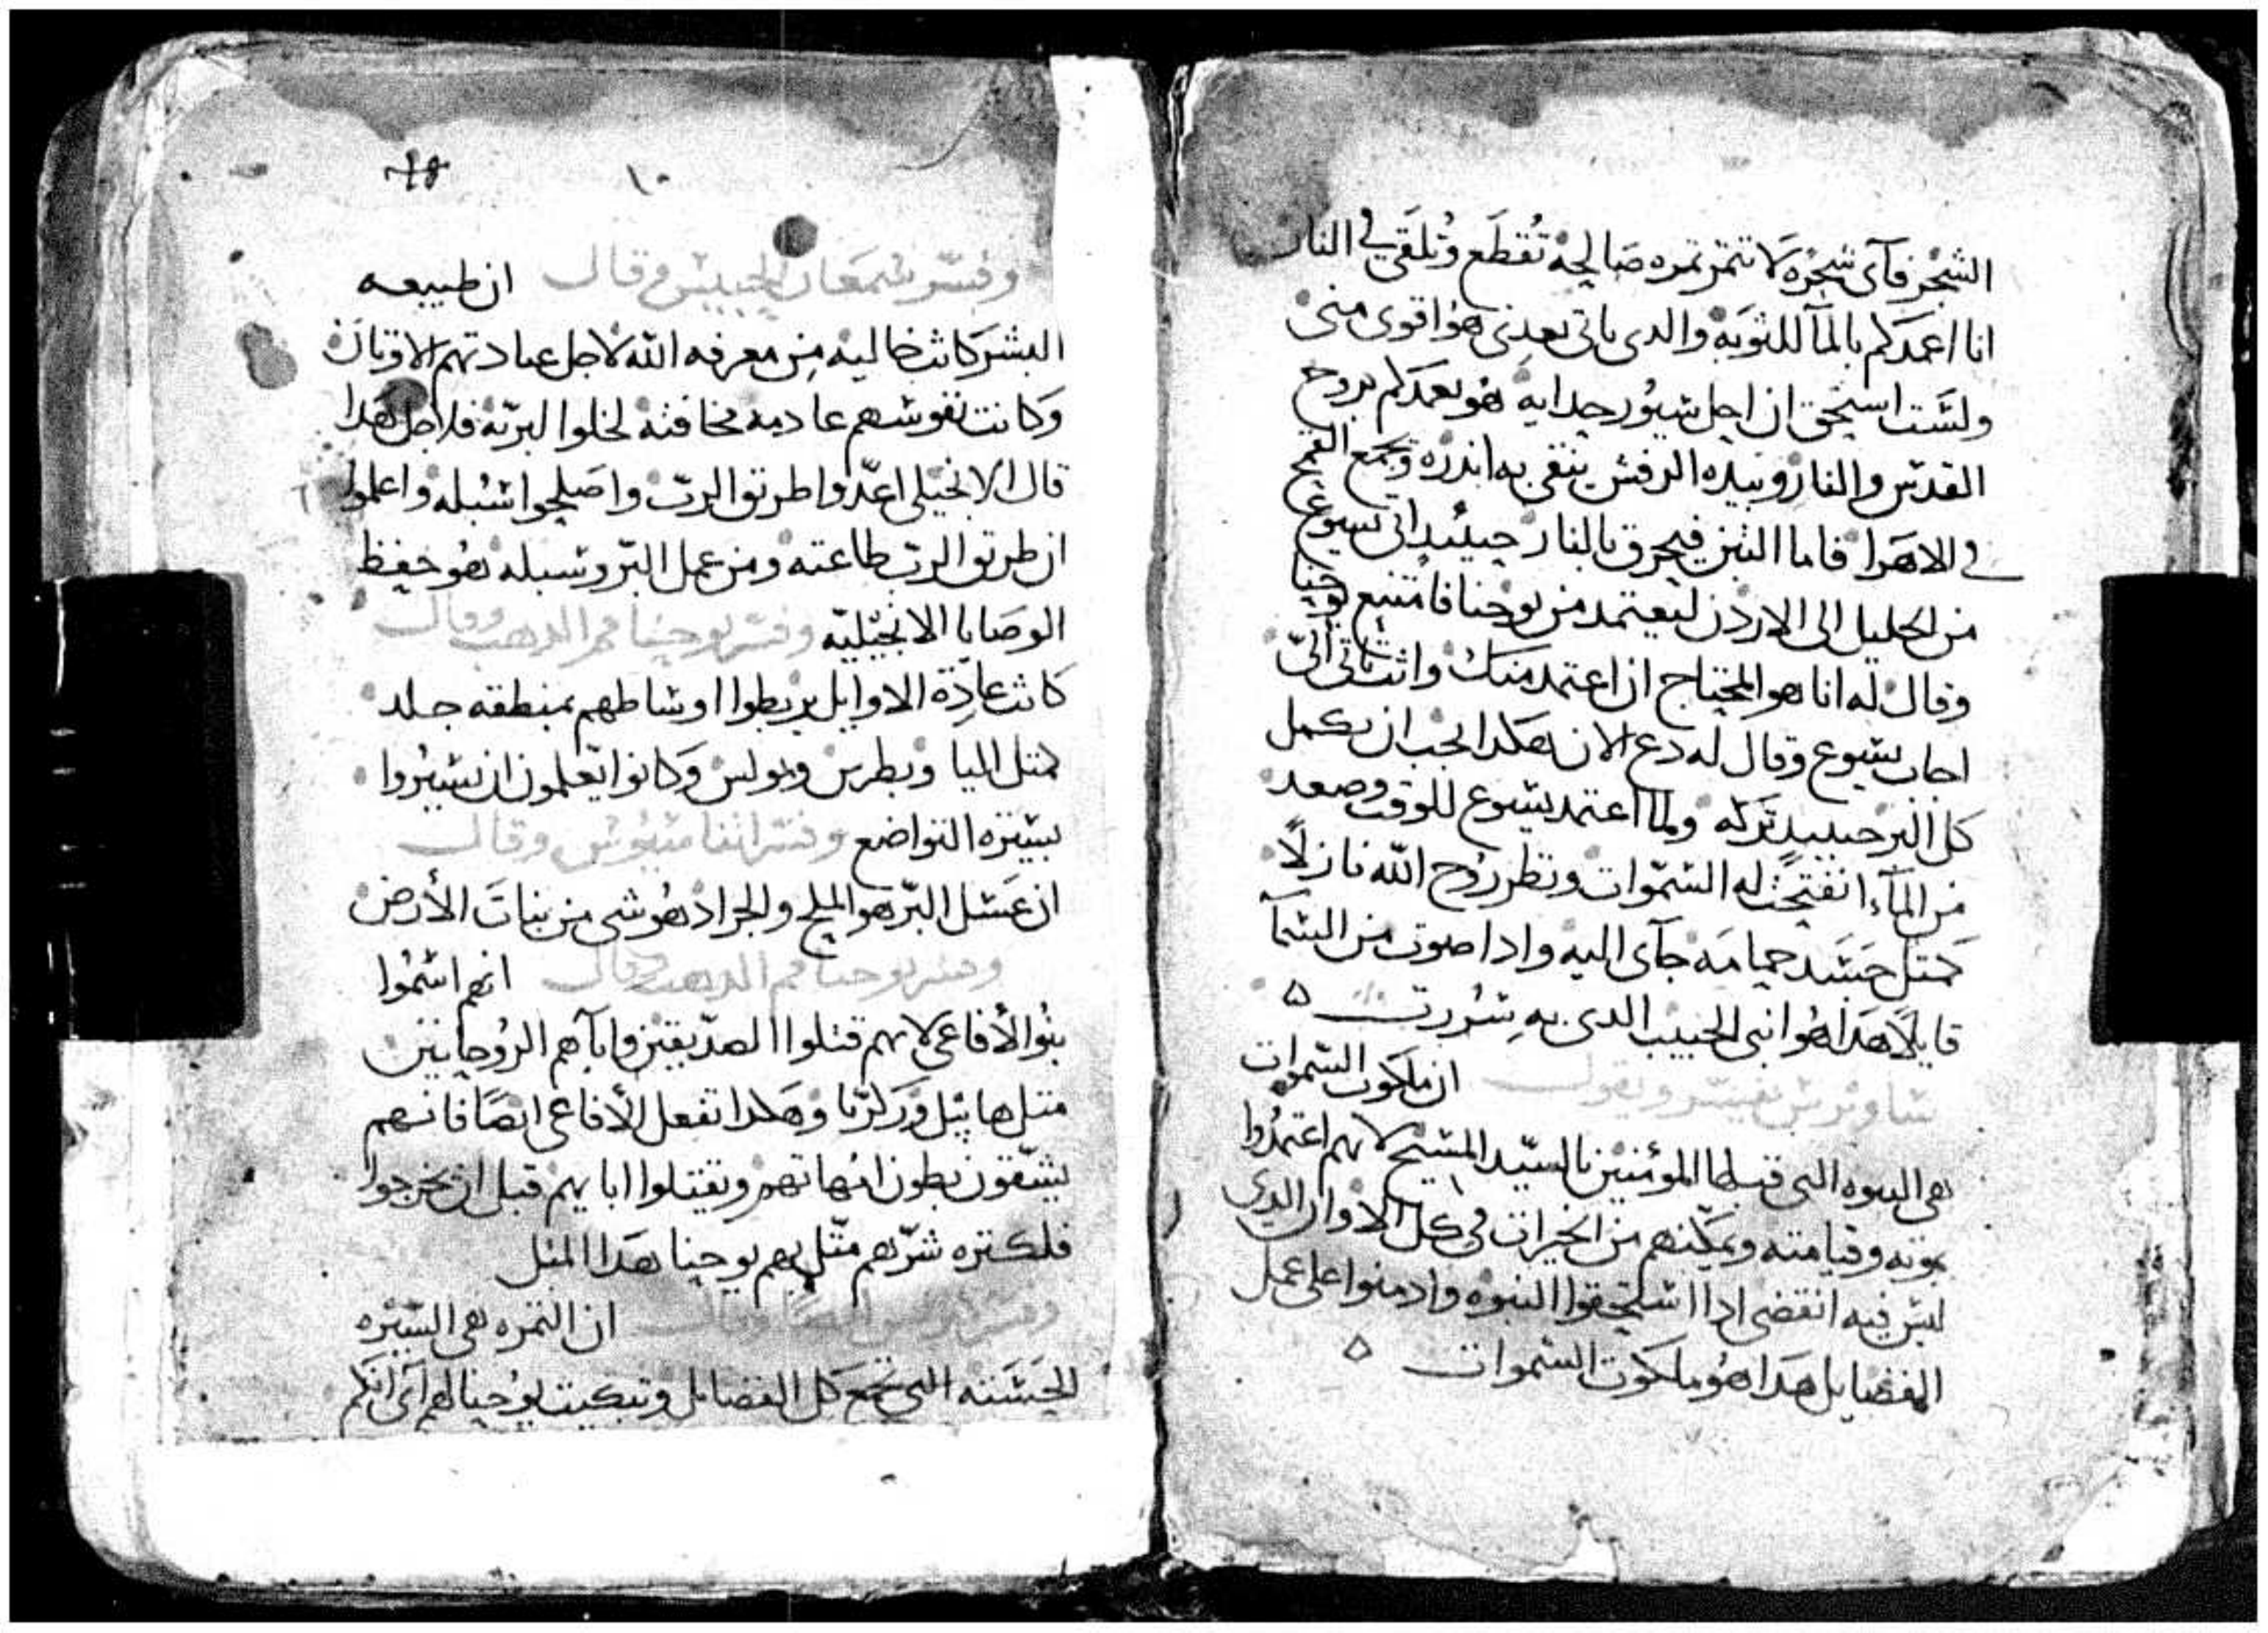 الشجر فآى شجره لا تتمر تمره صالحه تقطع وتلقى فى النار
انا اعمدكم بالمآ للتوبه والدى ياتى بعدى هو اقوى منى
ولست استحق ان احل سيور حدايه هو يعمدكم بروح
القدس والنار وبيده الرفش ينقى به اندره ويجمع القمح
فى الاهرا فاما التبن فيحرق بالنار حينيد اتى يسوع
من الجليل الى الاردن ليعتمد من يوحنا فامتنع يوحنا
وقال له انا هو المحتاج ان اعتمد منك وانت تاتى الىّ
اجاب يسوع وقال له دع الان هكدا يجب ان نكمل
كل البر حينيد تركه ولما اعتمد يسوع للوقت وصعد
من المآء انفتحت له السموات ونظر روح الله نازلاً
كمتل جسد حمامه جآى اليه وادا صوت من السمآ
قايلاً هدا هو ابنى الحبيب الدى به سررت ۵
ساويرس يفسر ويقول ان ملكوت السموات
هى البنوه التى قبلها المؤمنين بالسيد المسيح لانهم اعتمدوا
بموته وقيامته ويمكنهم من الخيرات فى كل الاوان الدى
ليس فيه انقضى ادا استحقوا البنوه وادمنوا على عمل
الفضايل هدا هو ملكوت السموات ۵
١٠
وفسر سمعان الحبيس وقال ان طبيعه
البشر كانت خاليه من معرفه الله لاجل عبادتهم الاوتان
وكانت نفوسهم عادمه مخافته لخلوا البريه فلاجل هدا
قال الانجيلى اعدّوا طريق الربّ واصلحوا سبله واعلموا
ان طريق الرب طاعته ومن عمل البرّ وسبله هو حفظ
الوصايا الانجيليّه وفسر يوحنا فم الدهب وقال
كانت عادة الاوايل يربطوا اوساطهم بمنطقه جلد
كمتل اليا وبطرس وبولس وكانوا يعلمون ان يسيروا
بسيره التواضع وفسر اتناسيوس وقال
ان عسل البرّ هو الملح والجراد هو شى من نبات الأرض
وفسر يوحنا فم الدهب وقال انهم اسموا
بنوا الأفاعى لانهم قتلوا الصدّيقين وابآهم الروحانيين
متل هابيل وزكريا وهكدا تفعل الأفاعى ايضًا فانهم
يشقّون بطون امهاتهم ويقتلوا اباهم قبل ان يخرجوا
فلكتره شرّهم متّل بهم يوحنا هدا المتل
ان التمره هى السيره
الحسنه التى تجمع كل الفضايل وتبكيت يوحنا لهم آى انكم